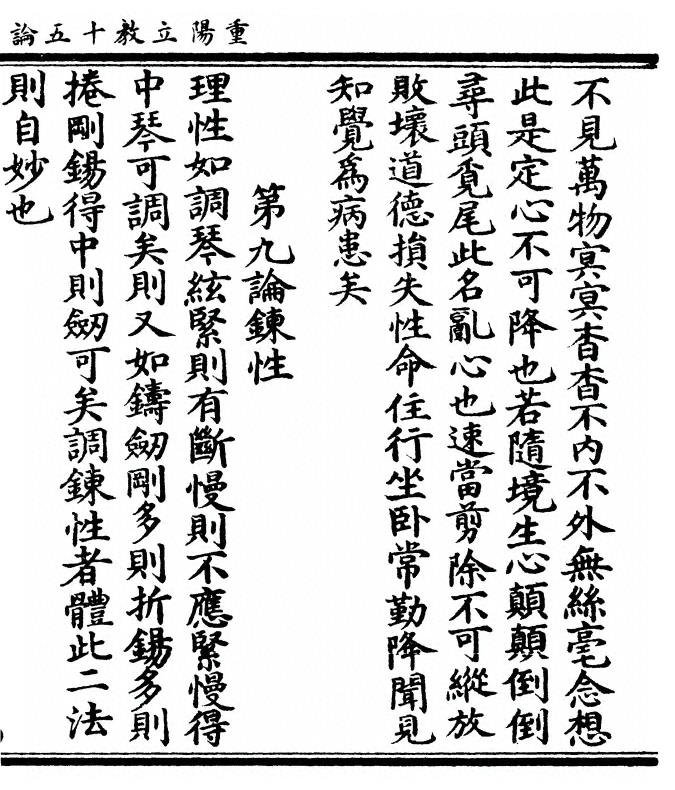 重陽立教十五論
不見萬物冥冥杳杳不内不外無絲毫念想
此是定心不可降也若隨境生心顛顛倒倒
尋頭覓尾此名亂心也速當剪除不可縱放
敗壞道德損失性命住行坐卧常勤降聞見
知覺爲病患矣
第九論鍊性
理性如調琴絃緊則有斷慢則不應緊慢得
中琴可調矣則又如鑄劒剛多則折錫多則
捲剛錫得中則劒可矣調鍊性者體此二法
則自妙也